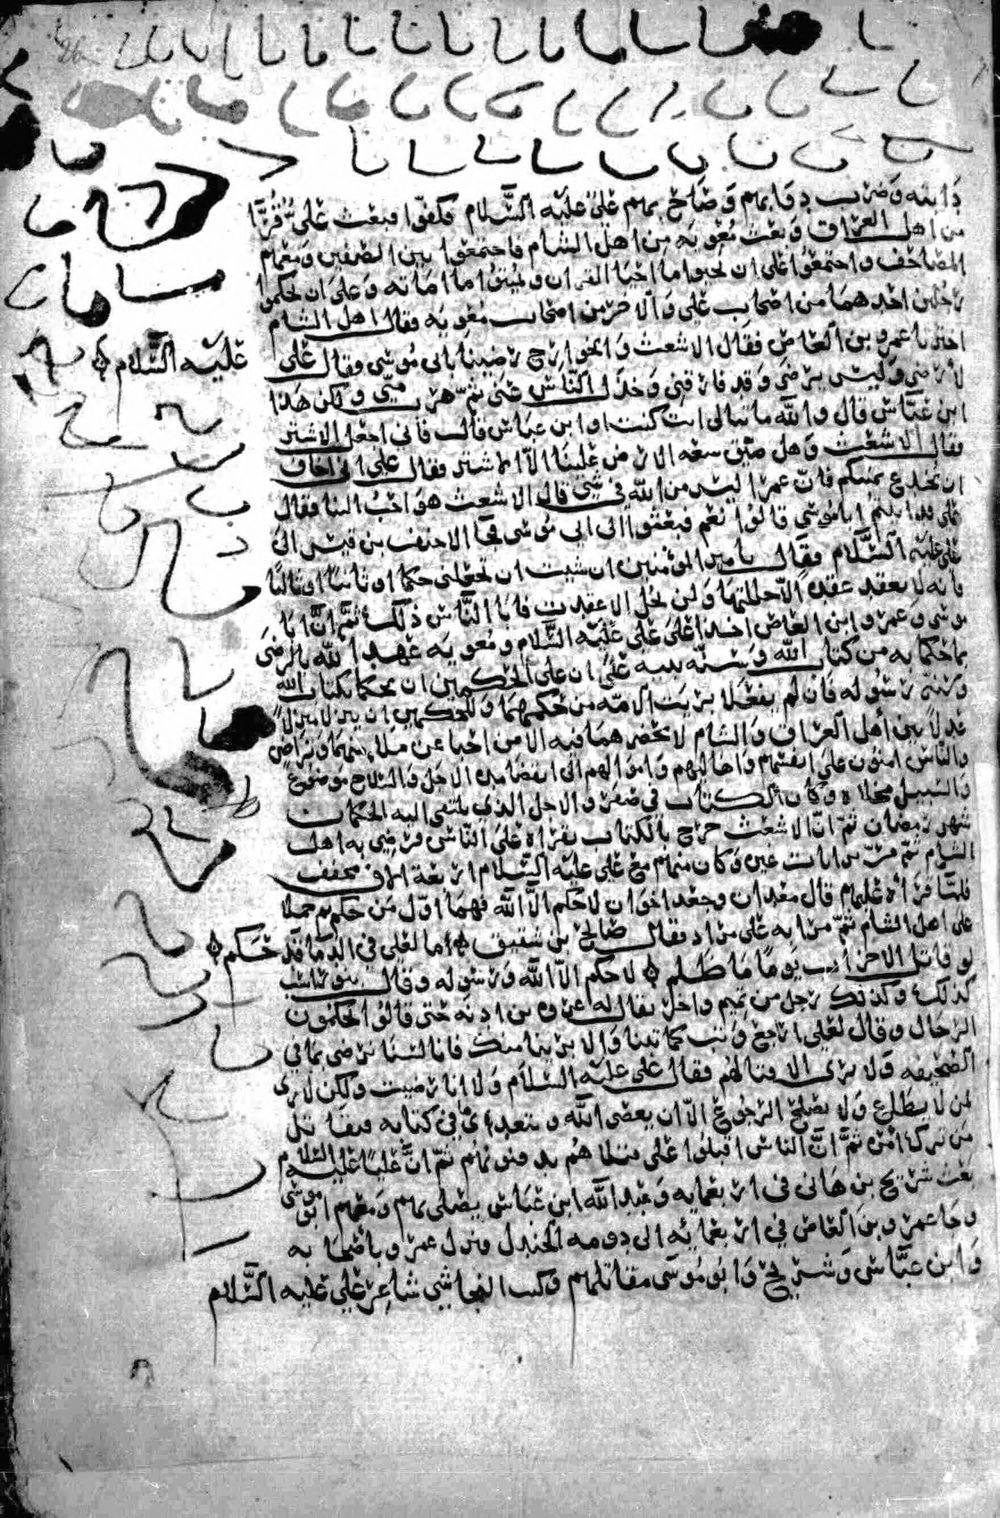 دابته وضرب دقابهام وصاح بهام علي عليه السلام فكفوا فبعث علي قرّا
من اهل العراق وبعث معويه من اهل الشام فاجتمعوا بين الصفين ومعهام
المصاحف واجتمعوا على ان يحيوا ما احيا القران ويميتوا ما اماته وعلى ان يحكموا
رجلين احدهما من اصحاب علي والاخر من اصحاب معويه فقال اهل الشام
اخترنا عمرو بن العاص فقال الاشعث والخوارج رضينا بابي موسى وقال علي
عليه السلام
لا ارضى وليس برضى وقد فارقني وخذل الناس عني ثم هرب مني ولكن هذا
ابن عباس قال والله ما نبالي انت كنت او ابن عباس قال فاني اجعل الاشتر
فقال الاشعث وهل ضيق سعه الارض علينا الا الاشتر فقال علي اني اخاف
ان يخدع يمنيكم فان عمرا ليس من الله في شي قال الاشعث هو احب الينا فقال
علي قد ابيتم الا ابا موسى قالوا نعم فبعثوا الى ابي موسى فجا الاحنف بن قيس الى
علي عليه السلام فقال يا امير المؤمنين ان شيت ان تجعلني حكما او ثانيا او ثالثا
فانه لا يعقد عقده الا حللتها ولن يحل الا عقدت فابا الناس ذلك ثم ان ابا
موسى وعمرو ابن العاص اخذا على علي عليه السلام ومعويه عهد الله بالرضى
بما حكما به من كتاب الله وسنه نبيه على ان على الحكمين ان يحكما بكتاب الله
وسنه رسوله فان لم يفعلا بريت الامه من حكمهما وللحكمين ان ينزلا منزلا
عدلا بين اهل العراق والشام لا يحضرهما فيه الا من احبا عن ملا منهما وتراضى
والناس امنون على انفسهام واهاليهم واموالهم الى انقضا مده الاجل والسلاح موضوع
والسبيل مخلاه وكان الكتاب في صفر والاجل الذي يلتقي اليه الحكمان
شهر رمضان ثم ان الاشعث خرج بالكتاب يقراه على الناس فرضي به اهل
الشام ثم مر برايات عنزه وكان منهام مع علي عليه السلام اربعة الاف مجفف
فلما قراه عليهام قال معدان وجعد اخوان لا حكم الا الله فهما اول من حكم ثم حملا
على اهل الشام ثم مر به على مراد فقال صالح بن شقيق ما لعلي في الدما قد حكم
لو قاتل الاحزاب يوما ما ظلم لا حكم الا الله ورسوله وقال بنو راسب
كذلك وكذلك رجل من تميم واخر يقال له عروه بن اديه حتى قالوا يحكمون
الرجال وقال لعلي ارجع وتب كما تبنا والا برينا منك فانا لسنا نرضى بما في
الصحيفه ولا نرى الا قتالهم فقال علي عليه السلام ولا انا رضيت ولكن لا رى
لمن لا يطاع ولا يصلح الرجوع الا ان يعصى الله ويتعدى ما في كتابه فيقاتل
من ترك امره ثم ان الناس اقبلوا على قتلاهم يدفنونهام ثم ان عليا عليه السلام
بعث شريح بن هاني في اربعمايه وعبد الله ابن عباس يصلي بهام ومعهام ابو موسى
وجا عمرو بن العاص في اربعمايه الى دومه الجندل ونزل عمرو باصحابه
وابن عباس وشريح وابو موسى مقابلهام وكتب النجاشي شاعر علي عليه السلام